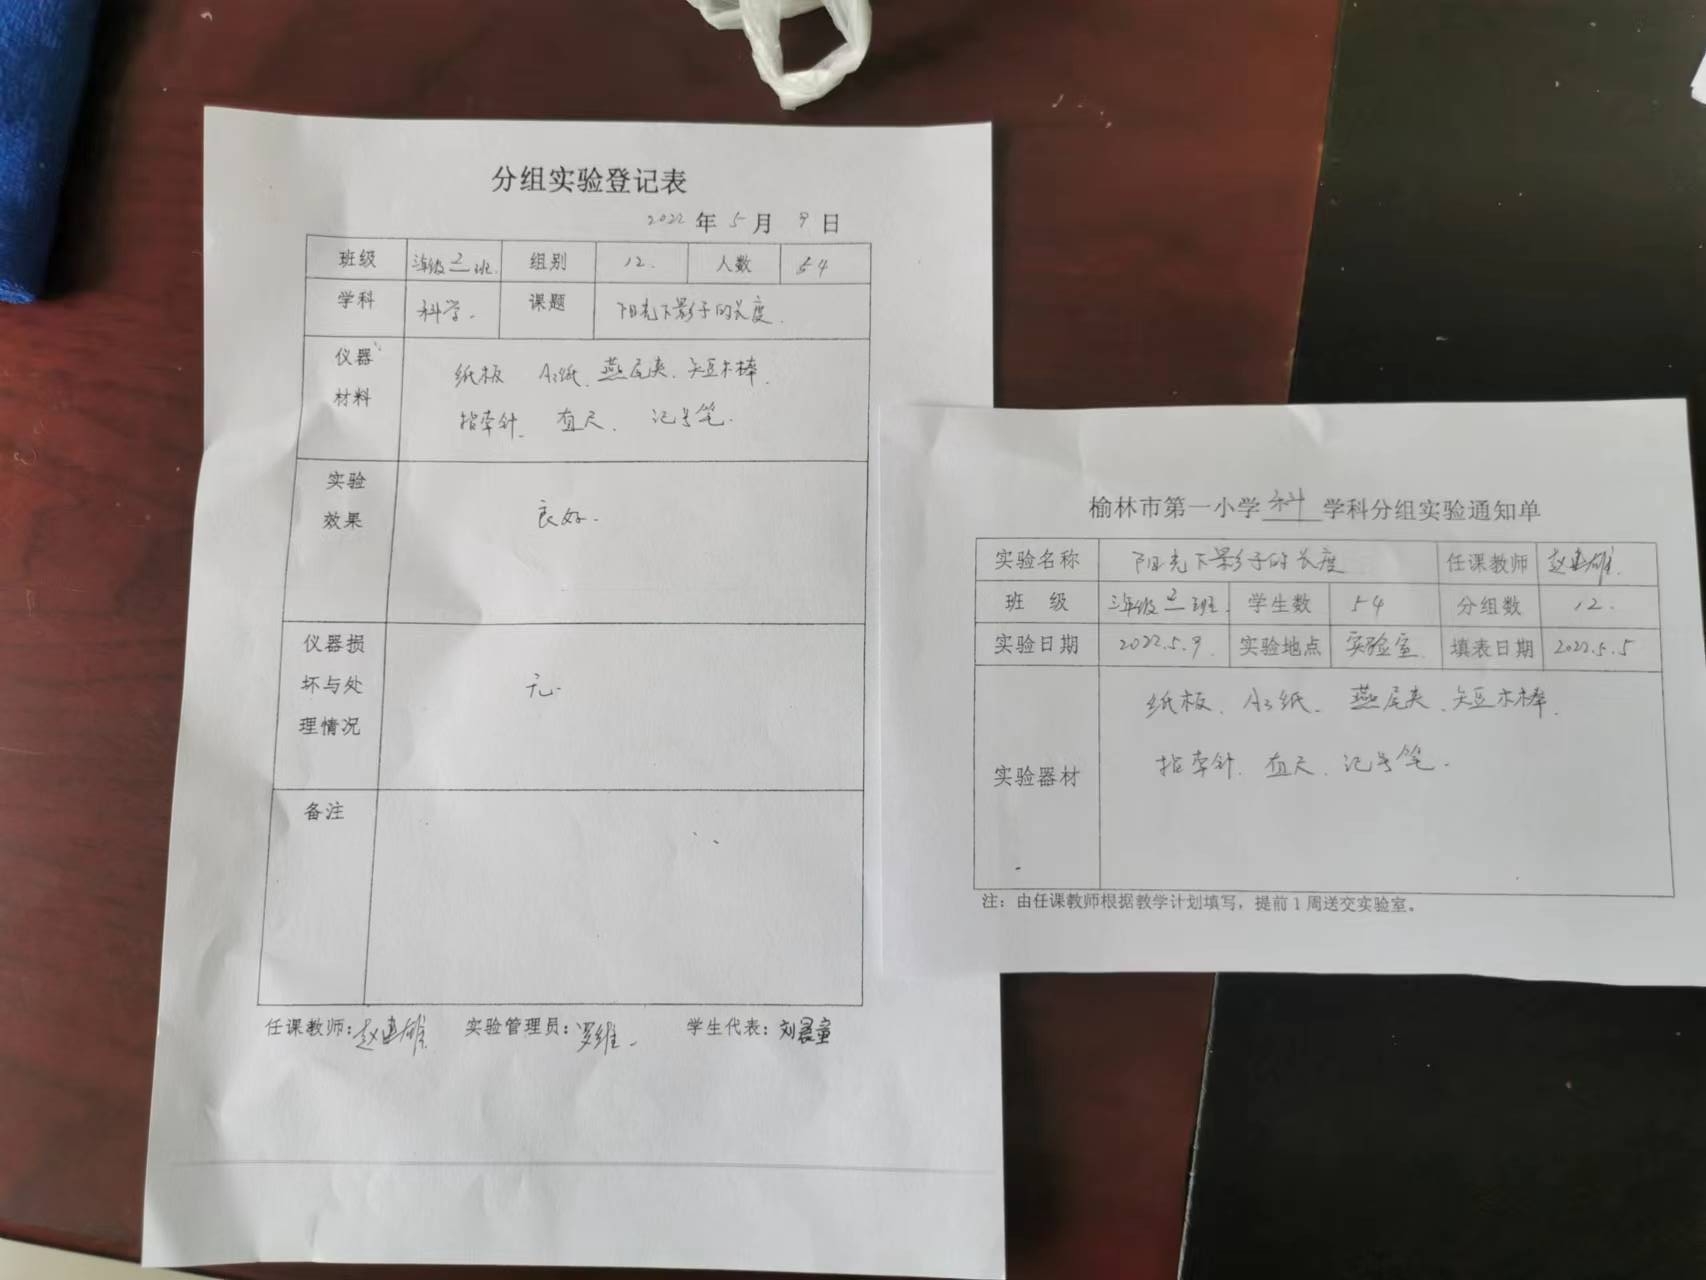 分组实验登记表
2022 年 5 月 9 日
班级 三年级2班. 组别 12. 人数 54
学科 科学. 课题 阳光下影子的长度.
仪器材料 纸板 A3纸. 燕尾夹. 短木棒.
指南针. 直尺. 记号笔.
实验效果 良好.
仪器损坏与处理情况 无.
备注
任课教师:赵建雄 实验管理员:罗维. 学生代表:刘晨童
榆林市第一小学科学科分组实验通知单
实验名称 阳光下影子的长度 任课教师 赵建雄.
班 级 三年级2班. 学生数 54 分组数 12.
实验日期 2022.5.9. 实验地点 实验室. 填表日期 2022.5.5
实验器材 纸板. A3纸. 燕尾夹. 短木棒.
指南针. 直尺. 记号笔.
注:由任课教师根据教学计划填写,提前1周送交实验室。